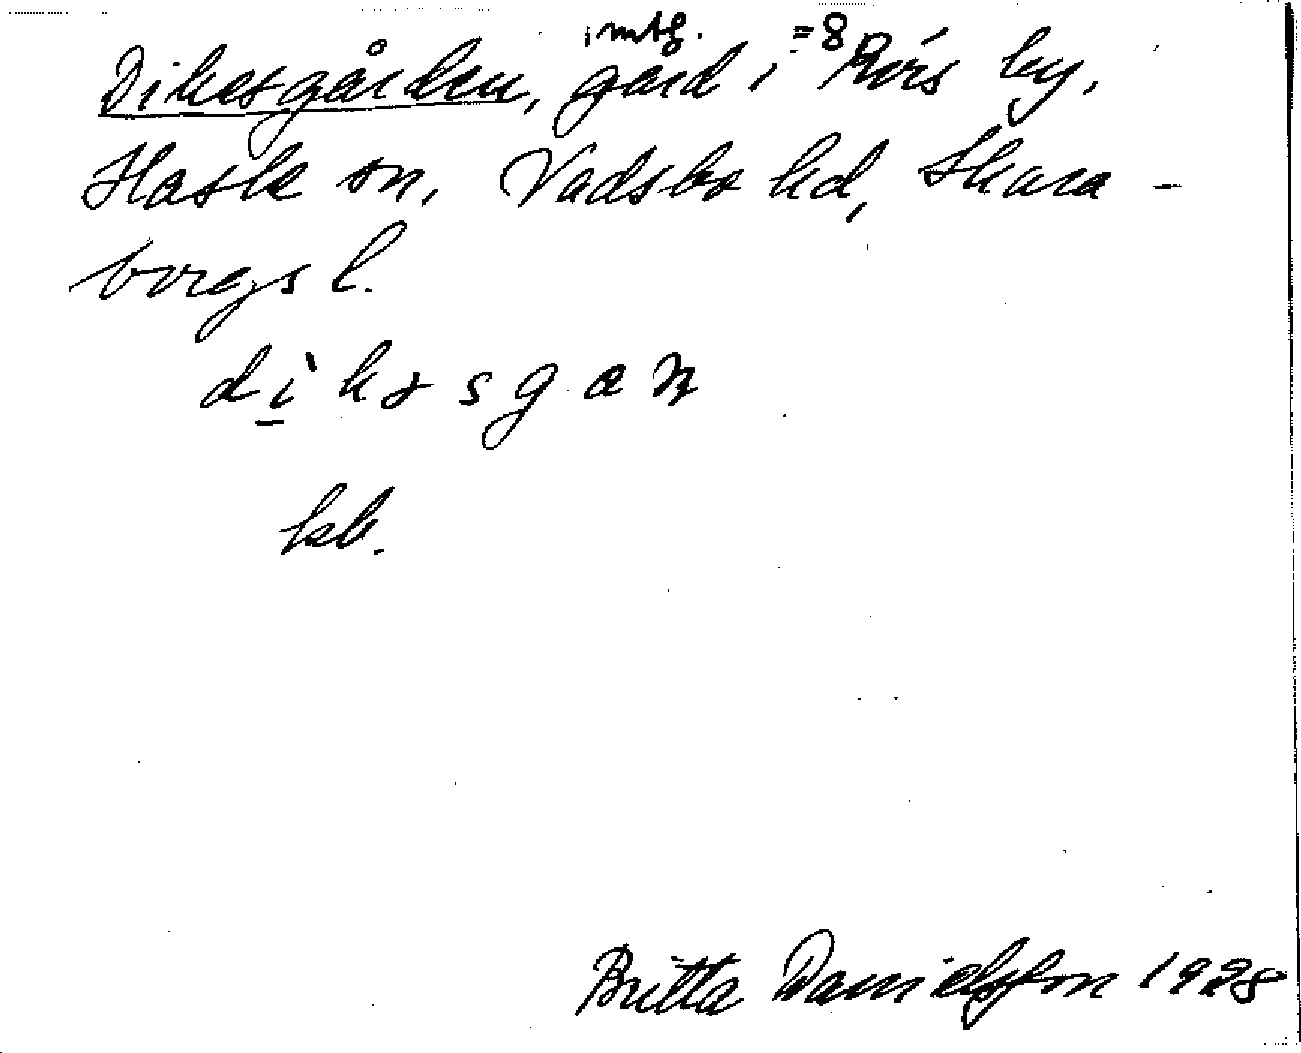 i mtg. = 8
Dikesgården, gård i Rörs by,
Hassle sn, Vadsbo hd, Skara-
borgs l.
dikəsgaɳ
kb.
Britta Danielsson 1928